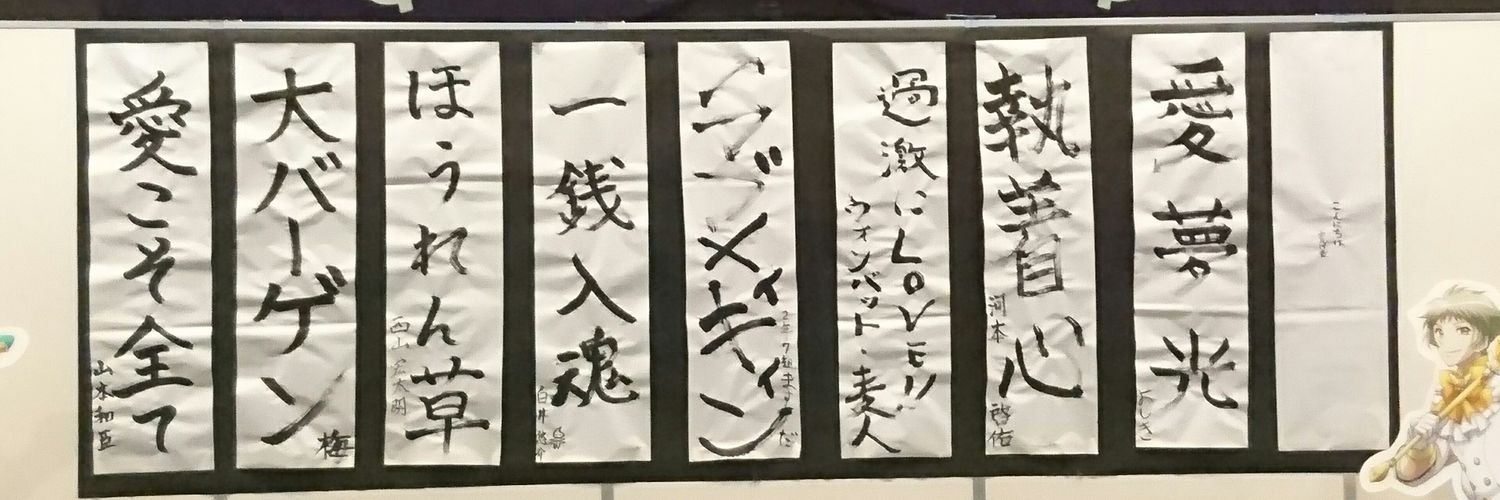 こんにちは
愛夢光
よしき
執着心
河本
啓佑
過激にLOVEモリ!!
ウォンバット・麦人
2年7組ますだ
一銭入魂
白井悠介
ほうれん草
西山宏太朗
大バーゲン
梅
愛こそ全て
山本和臣